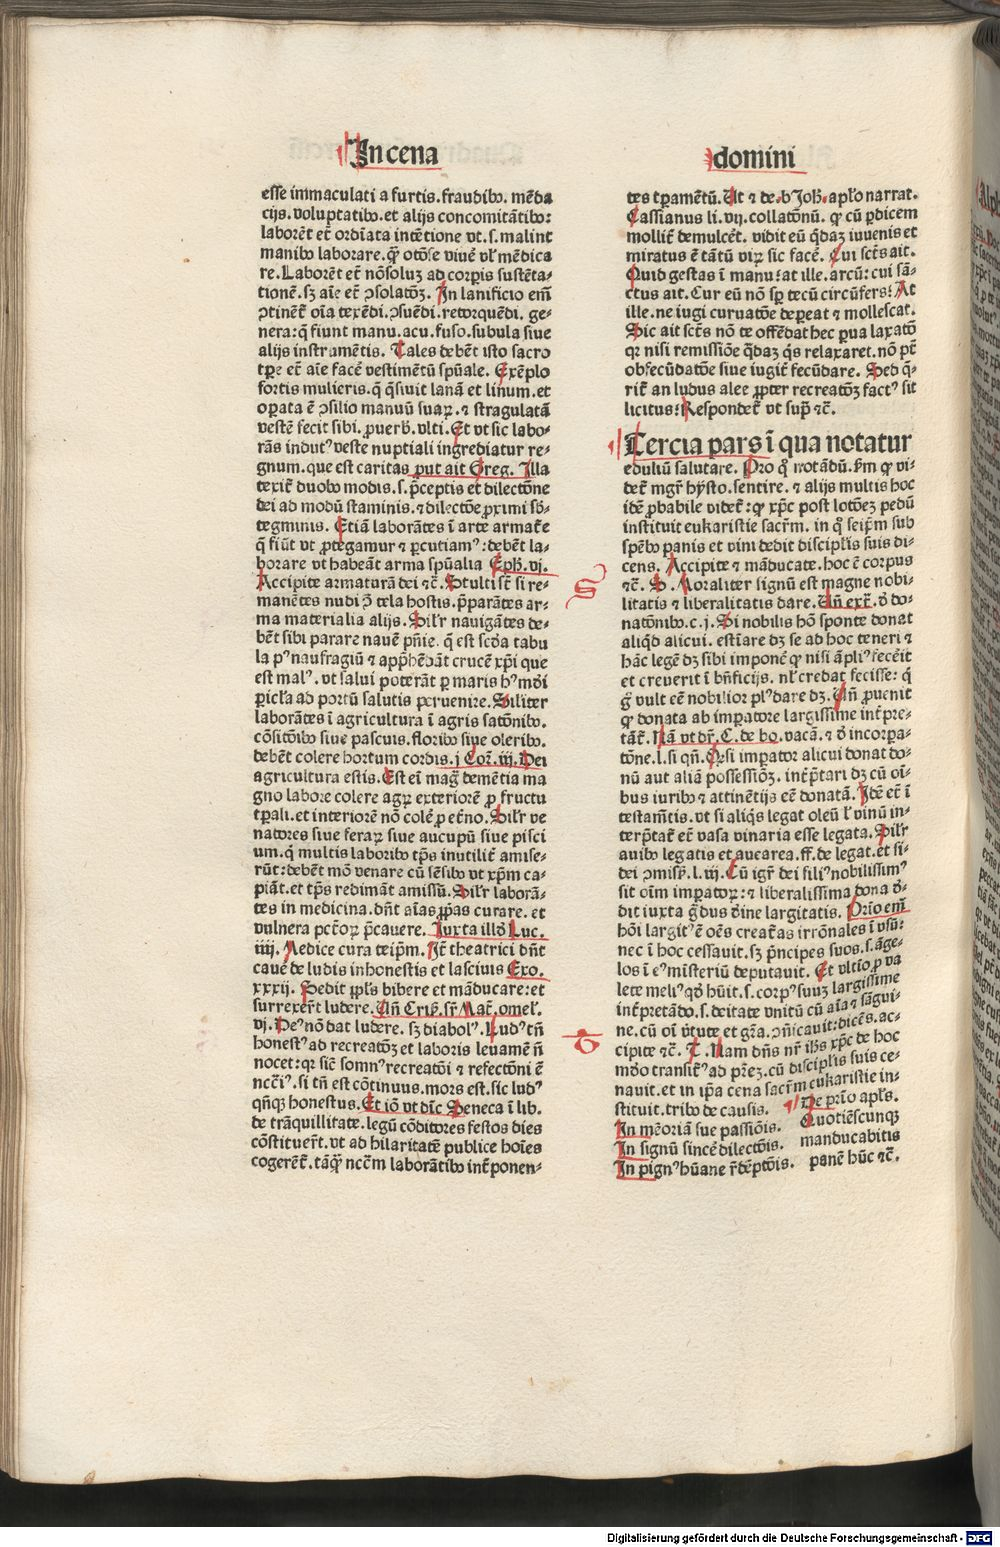 In cena
domini
esse immaculati a furtis. fraudibꝰ. mēda
cijs. voluptatibꝰ. et alijs concomitātibꝰ:
laborēt et̄ ordīata intētione vt. s. malint
manibꝰ laborare. ꝙ̄ otōse viuē vl̓ mēdica
re. Laborēt et̄ nōsoluꝫ ad corꝑis sustēta-
tionē. sꝫ aīe et̄ ꝯsolatōꝫ. In lanificio em̄
ꝯtinēt̓ oīa texēdi. ꝯsuēdi. retorquēdi. ge-
nera: q̄ fiunt manu. acu. fuso. subula siue
alijs instramētis. Tales debēt isto sacro
tꝑe et̄ aīe facē vestimētū spūale. Exēplo
fortis mulieris. q̄ q̄siuit lanā et linum. et
oꝑata ē ꝯsilio manuū suaꝝ. ⁊ stragulatā
vestē fecit sibi. ꝓuerb̓. vlti. Et vt sic labo-
rās indutꝰ veste nuptiali ingrediatur re-
gnum. que est caritas ꝓut ait Greg. Illa
texit̓ duobꝰ modis. s. p̄ceptis et dilectōne
dei ad modū staminis. ⁊ dilectōe ꝓximi sb̄-
tegminis. Etiā laborātes ī arte armat̓e
q̄ fiūt vt ꝓtegamur ⁊ ꝑcutiamꝰ: debēt la-
borare vt habeāt arma spūalia Eph̓. vj.
Accipite armaturā dei ⁊c̄. Stulti st̄ si re-
manētes nudi ꝯ̄ tela hostis. p̄parātes ar-
ma materialia alijs. Sil̓r nauigātes de-
bēt sibi parare nauē pn̄ie. q̄ est scd̓a tabu
la pꝰ naufragiū ⁊ app̄hēdāt crucē xp̄i que
est malꝰ. vt salui poterāt ꝑ maris hꝰ mōi
ꝑicl̓a ad portū salutis peruenire. Siliter
laborātes ī agricultura ī agris satōnibꝰ.
cōsitōibꝰ siue pascuis. floribꝰ siue oleribꝰ.
debēt colere hortum cordis. j Cor̄. iij. Dei
agricultura estis. Est ei̓m mag̓ demētia ma
gno labore colere agꝝ exteriorē ꝓ fructu
tꝑali. et interiorē nō colē ꝓ et̓no. Sil̓r ve
natores siue feraꝝ siue aucupū siue pisci
um. q̄ multis laboribꝰ tp̄s inutilit̓ amise-
rūt: debēt mō venare cū sēsibꝰ vt xp̄m ca-
piāt. et tp̄s redimāt amissū. Sil̓r laborā-
tes in medicina. dn̄t aīas ꝓpas curare. et
vulnera pct̄oꝝ p̄cauere. Iuxta illd̓ Luc.
iiij. Medice cura teip̄m. It̄ theatrici dn̄t
cauē de ludis inhonestis et lasciuis Exo.
xxxij. Sedit ppl̓s bibere et māducare: et
surrexer̄t ludere. Un̄ Cris̓. sr̄ Mat̓. omel̓.
vj. Deꝰ nō dat ludere. sꝫ diabolꝰ. Ludꝰ tn̄
honestꝰ ad recreatōꝫ et laboris leuamē n̄
nocet: qꝛ sic̄ somnꝰ recreatōi ⁊ refectōni ē
ncc̄iꝰ. si tn̄ est cōtinuus. mors est. sic ludꝰ
qn̄qꝫ honestus. Et iō vt dīc Seneca ī lib.
de trāquillitate. legū cōditores festos dies
cōstituer̄t. vt ad hilaritatē publice hoīes
cogerēt̓. tāꝙ̄ ncc̄m laborātibꝰ int̓ ponen-
tes tꝑamētū. Ut ⁊ de. b̓ Joh̄. apl̓o narrat.
Cassianus li. vij. collatōnū. ꝙ cū ꝑdicem
mollit̓ demulcēt. vidit eū q̄daꝫ iuuenis et
miratus ē tātū viꝝ sic facē. Cui sct̄s ait.
Quid gestas ī manu: at ille. arcū: cui sā-
ctus ait. Cur eū nō sꝑ tecū circūfers? At
ille. ne iugi curuatōe deꝑeat ⁊ mollescat.
Sic ait sct̄s nō te offēdat hec ꝑua laxatō
qꝛ nisi remissiōe q̄daꝫ q̄s relaxaret. nō pt̄
obfecūdatōe siue iugit̓ fecūdare. Sed q̄-
rit̓ an ludus alee ꝓpter recreatōꝫ factꝰ sit
licitus: Respondet̓ vt sup̄ ⁊c̄.
Tercia pars ī qua notatur
eduliū salutare. Pro qͦ notādū. pͥm ꝙ vi-
det̓ mgr̄ hȳsto. sentire. ⁊ alijs multis hoc
idē ꝓbabile videt̓: ꝙ xp̄c post lotōeꝫ pedū
instituit eukaristie sacr̄m. in qͦ seip̄m sub
spēbꝰ panis et vini dedit discipl̓is suis di-
cens. Accipite ⁊ māducate. hoc ē corpus
⁊c̄. S. Moraliter signū est magne nobi-
litatis ⁊ liberalitatis dare. Un̄ ext̓. d̓ do-
natōnibꝰ. c. j. Si nobilis hō sponte donat
aliqd̓ alicui. estīare dꝫ se ad hoc teneri ⁊
hāc legē dꝫ sibi imponē ꝙ nisi āpliꝰ fecēit
et creuerit ī bn̄ficijs. nl̓ credat fecisse: q̄
g̓ vult eē nobilior plꝰ dare dꝫ. Un̄ ꝓuenit
ꝙ donata ab imꝑatore largissime int̓pre-
tāt̓. Nā vt dr̄. C. de bo. vacā. ⁊ d̓ incorpa-
tōne. l. si qn̄. Qn̄si imꝑator alicui donat do-
nū aut aliā possessiōꝫ. int̓p̄tari dꝫ cū oī-
bus iuribꝰ ⁊ attinētijs eē donatā. Idē et̄ ī
testam̄tis. vt si aliq̄s legat oleū l̓ vinū in-
terp̄tat̓ et̄ vasa vinaria esse legata. Sil̓r
auibꝰ legatis et aucarea. ff. de legat. et fi-
dei ꝯmiss̓. l. iij. Cū igr̄ dei filiꝰ nobilissimꝰ
sit oīm imꝑatoꝝ: ⁊ liberalissima dona d̓-
dit iuxta g̓dus d̓ine largitatis. Prīo em̄
hōi largitꝰ ē oēs creat̓as irrōnales ī vsū:
nec ī hoc cessauit. sꝫ p̄ncipes suos. s. āge-
los ī eꝰ mīsteriū deputauit. Et vltīo ꝓ va
lete meliꝰ qd̓ hūit. s. corpꝰ suuꝫ largissime
int̓pretādo. s. deitate vnitū cū aīa ⁊ sāgui-
ne. cū oī v̓tute et gr̄a. ꝯn̄icauit: dicēs. ac-
cipite ⁊c̄. T. Nam dn̄s nr̄ ih̄s xp̄c de hoc
mōo transit̓ꝰ ad pr̄eꝫ. cū discipl̓is suis ce-
nauit. et in ip̄a cena sacr̄m eukaristie in-
stituit. tribꝰ de causis.
In mēoriā sue passiōis.
In signū sincē dilectōis.
In pignꝰ hūane r̄dēptōis.
De prīo apl̓s.
Quotiēscunqꝫ
manducabitis
panē hūc ⁊c̄.
S
T
Digitalisierung gefördert durch die Deutsche Forschungsgemeinschaft - DFG